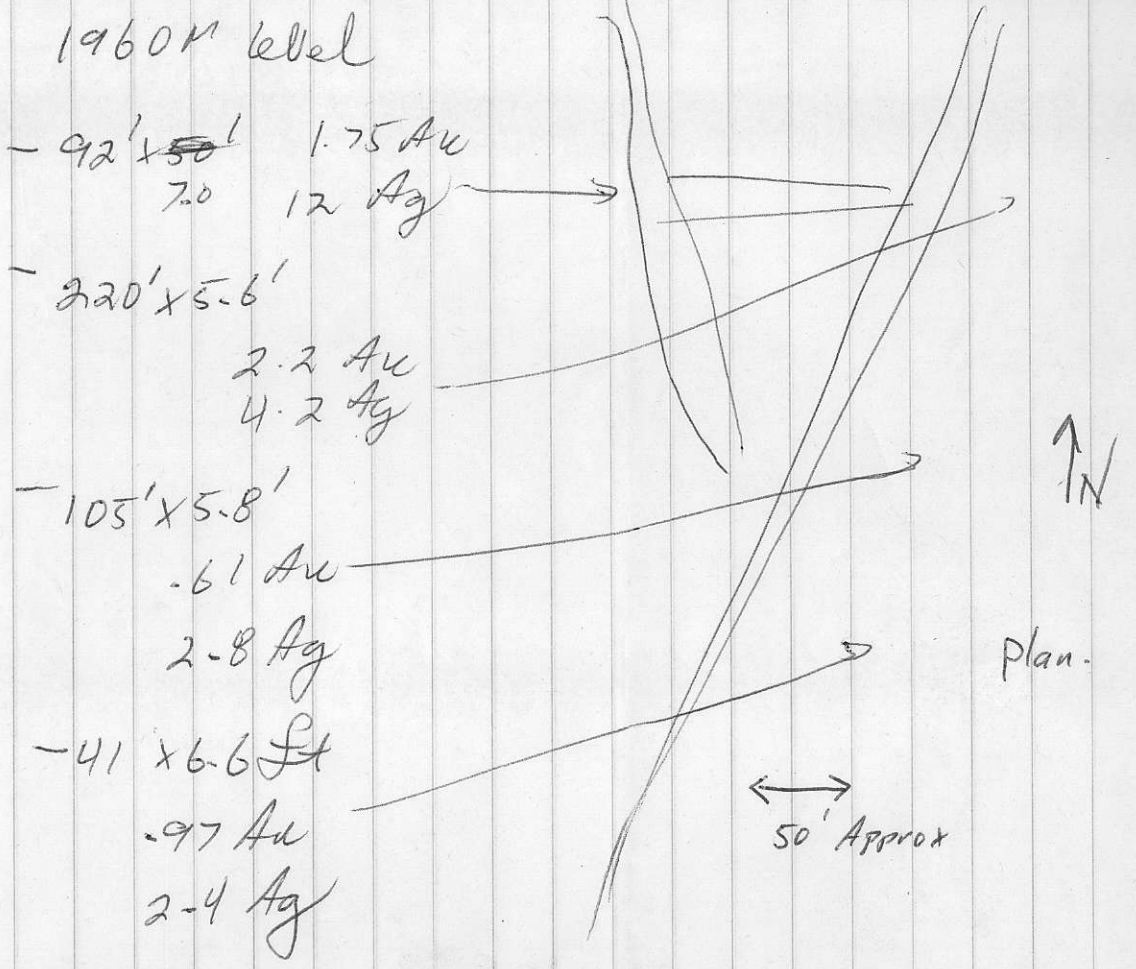 1960M level
- 92' x 50' 1.75 Au
7.0 12 Ag
- 220' x 5.6'
2.2 Au
4.2 Ag
- 105' x 5.8'
.61 Au
2.8 Ag
- 41 x 6.6 ft
.97 Au
2.4 Ag
N
Plan.
50' Approx